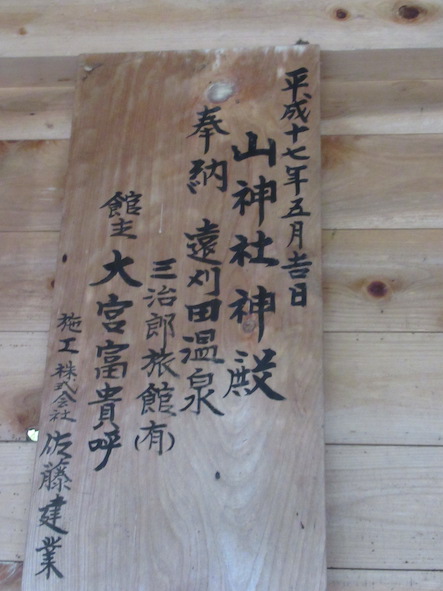 平成十七年五月吉日
山神社神殿
奉納 遠刈田温泉
三治郎旅館(有)
館主 大宮富貴呼
施工 株式会社 佐藤建業